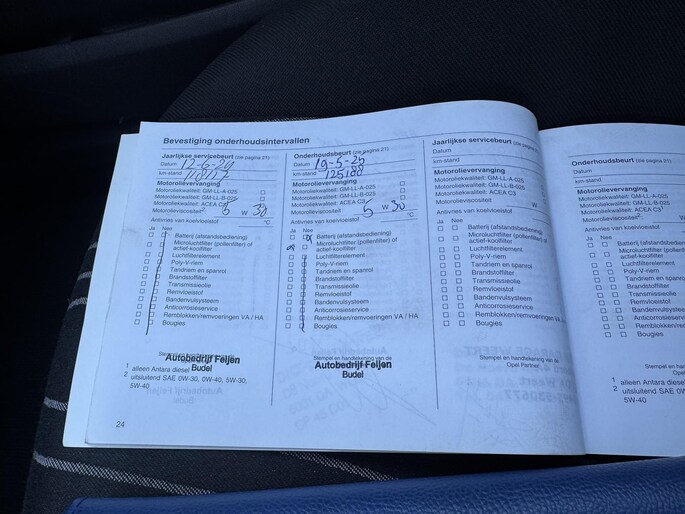 Bevestiging onderhoudsintervallen
Jaarlijkse servicebeurt (zie pagina 21)
Datum 12-6-24
km-stand 118117
Motorolievervanging
Motoroliekwaliteit: GM-LL-A-025
Motoroliekwaliteit: GM-LL-B-025
Motoroliekwaliteit: ACEA C3
Motorolieviscositeit2: 5 W 30
Antivries van koelvloeistof °C
Ja Nee
Batterij (afstandsbediening)
Microluchtfilter (pollenfilter) of
actief-koolfilter
Luchtfilterelement
Poly-V-riem
Tandriem en spanrol
Brandstoffilter
Transmissieolie
Remvloeistof
Bandenvulsysteem
Anticorrosieservice
Remblokken/remvoeringen VA / HA
Bougies
Autobedrijf Feijen
Budel
1 alleen Antara diesel
2 uitsluitend SAE 0W-30, 0W-40, 5W-30,
5W-40
24
Onderhoudsbeurt (zie pagina 21)
Datum 19-5-25
km-stand 125188
Motorolievervanging
Motoroliekwaliteit: GM-LL-A-025
Motoroliekwaliteit: GM-LL-B-025
Motoroliekwaliteit: ACEA C3
Motorolieviscositeit 5 W 30
Antivries van koelvloeistof °C
Ja Nee
Batterij (afstandsbediening)
Microluchtfilter (pollenfilter) of
actief-koolfilter
Luchtfilterelement
Poly-V-riem
Tandriem en spanrol
Brandstoffilter
Transmissieolie
Remvloeistof
Bandenvulsysteem
Anticorrosieservice
Remblokken/remvoeringen VA / HA
Bougies
Stempel en handtekening van de
Autobedrijf Feijen
Budel
Jaarlijkse servicebeurt (zie pagina 21)
Datum
km-stand
Motorolievervanging
Motoroliekwaliteit: GM-LL-A-025
Motoroliekwaliteit: GM-LL-B-025
Motoroliekwaliteit: ACEA C3
Motorolieviscositeit W
Antivries van koelvloeistof
Ja Nee
Batterij (afstandsbediening)
Microluchtfilter (pollenfilter) of
actief-koolfilter
Luchtfilterelement
Poly-V-riem
Tandriem en spanrol
Brandstoffilter
Transmissieolie
Remvloeistof
Bandenvulsysteem
Anticorrosieservice
Remblokken/remvoeringen VA /
Bougies
Stempel en handtekening van de
Opel Partner
Onderhoudsbeurt (zie pagina 21)
Datum
km-stand
Motorolievervanging
Motoroliekwaliteit: GM-LL-A-025
Motoroliekwaliteit: GM-LL-B-025
Motoroliekwaliteit: ACEA C3
Motorolieviscositeit
Antivries van koelvloeistof
Ja Nee
Batterij (afstandsbediening)
Microluchtfilter (pollenfilter) of
actief-koolfilter
Luchtfilterelement
Poly-V-riem
Tandriem en spanrol
Brandstoffilter
Transmissieolie
Remvloeistof
Bandenvulsysteem
Anticorrosieservice
Remblokken/remvoeringen
Bougies
1 alleen Antara diesel
2 uitsluitend SAE 0W-30,
5W-40